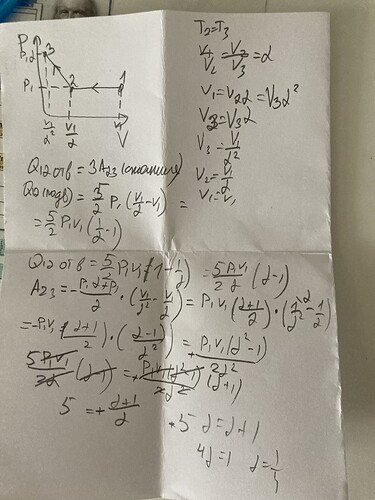 P
P₁α 3
P₁ 2 1
V₁/α² V₁/α V₁ V
T₂=T₃
V₁/V₂ = V₂/V₃ = α
V₁=V₂α = V₃α²
V₂=V₃α
V₃ = V₁/α²
V₂ = V₁/α
V₁=V₁
Q12 отв = 3A23
Q0(подв) = 5/2 P₁ (V₁/α - V₁) =
= 5/2 P₁V₁ (1/α - 1)
Q12 отв = 5/2 P₁V₁ (1 - 1/α) = 5P₁V₁/2α (α-1)
A23 = - (P₁α+P₁)/2 · (V₁/α² - V₁/α) = P₁V₁ (α+1/2) (1/α² - 1/α)
= -P₁V₁ (α+1/2) · (α-1/α²) = + P₁V₁(α²-1)/2α²
5P₁V₁/2α (α-1) = + P₁V₁(α²-1)/2α² (α+1)
5 = + α+1/α
+ 5α = α+1
4α = 1 α = 1/4